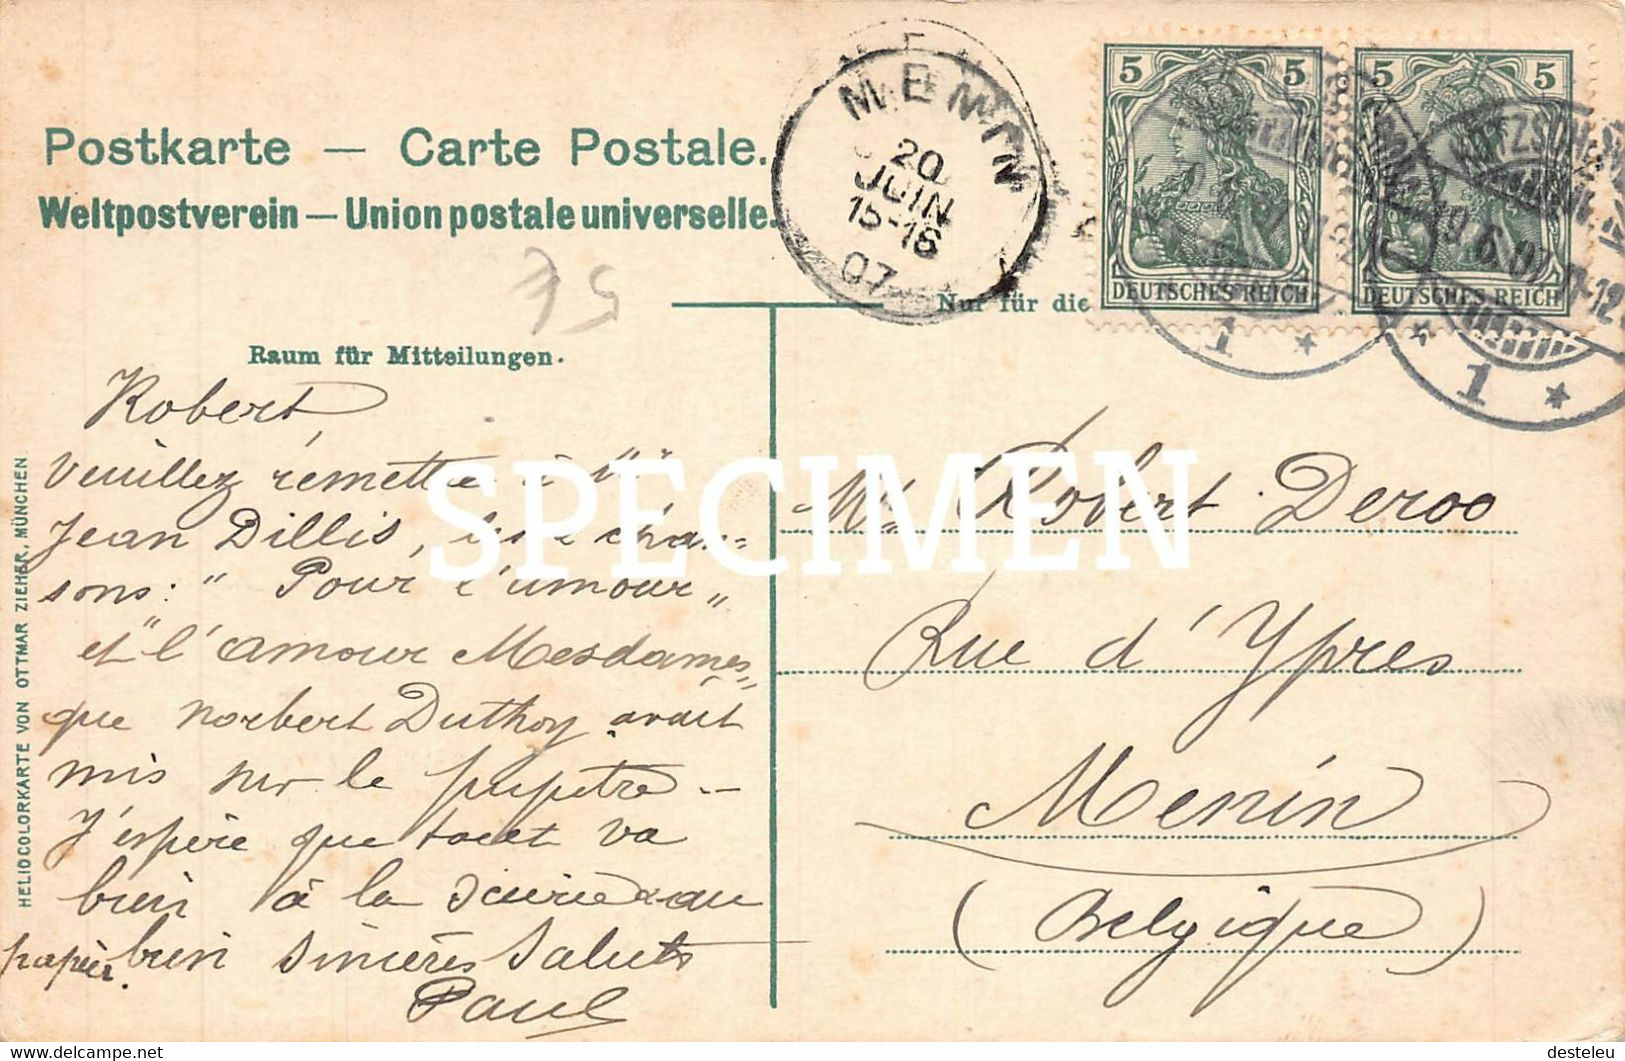 Postkarte — Carte Postale.
Weltpostverein — Union postale universelle.
MENIN
20
JUIN
15-16
07
5 5
DEUTSCHES REICH
5 5
DEUTSCHES REICH
1 *
1 *
Nur für die
75
Raum für Mitteilungen.
Robert,
Veuillez remettre à
Jean Dillis, les 2 chan-
sons: " Pour l'amour "
et " l'amour Mesdames "
que Norbert Duthoy avait
mis sur le pupitre —
J'espère que tout va
bien à la Scierie & au
papier. bien sincères Saluts
Paul
Mr. Robert Deroo
Rue d'Ypres
Menin
(Belgique)
HELIOCOLORKARTE VON OTTMAR ZIEHER, MÜNCHEN
SPECIMEN
delcampe.net
desteleu